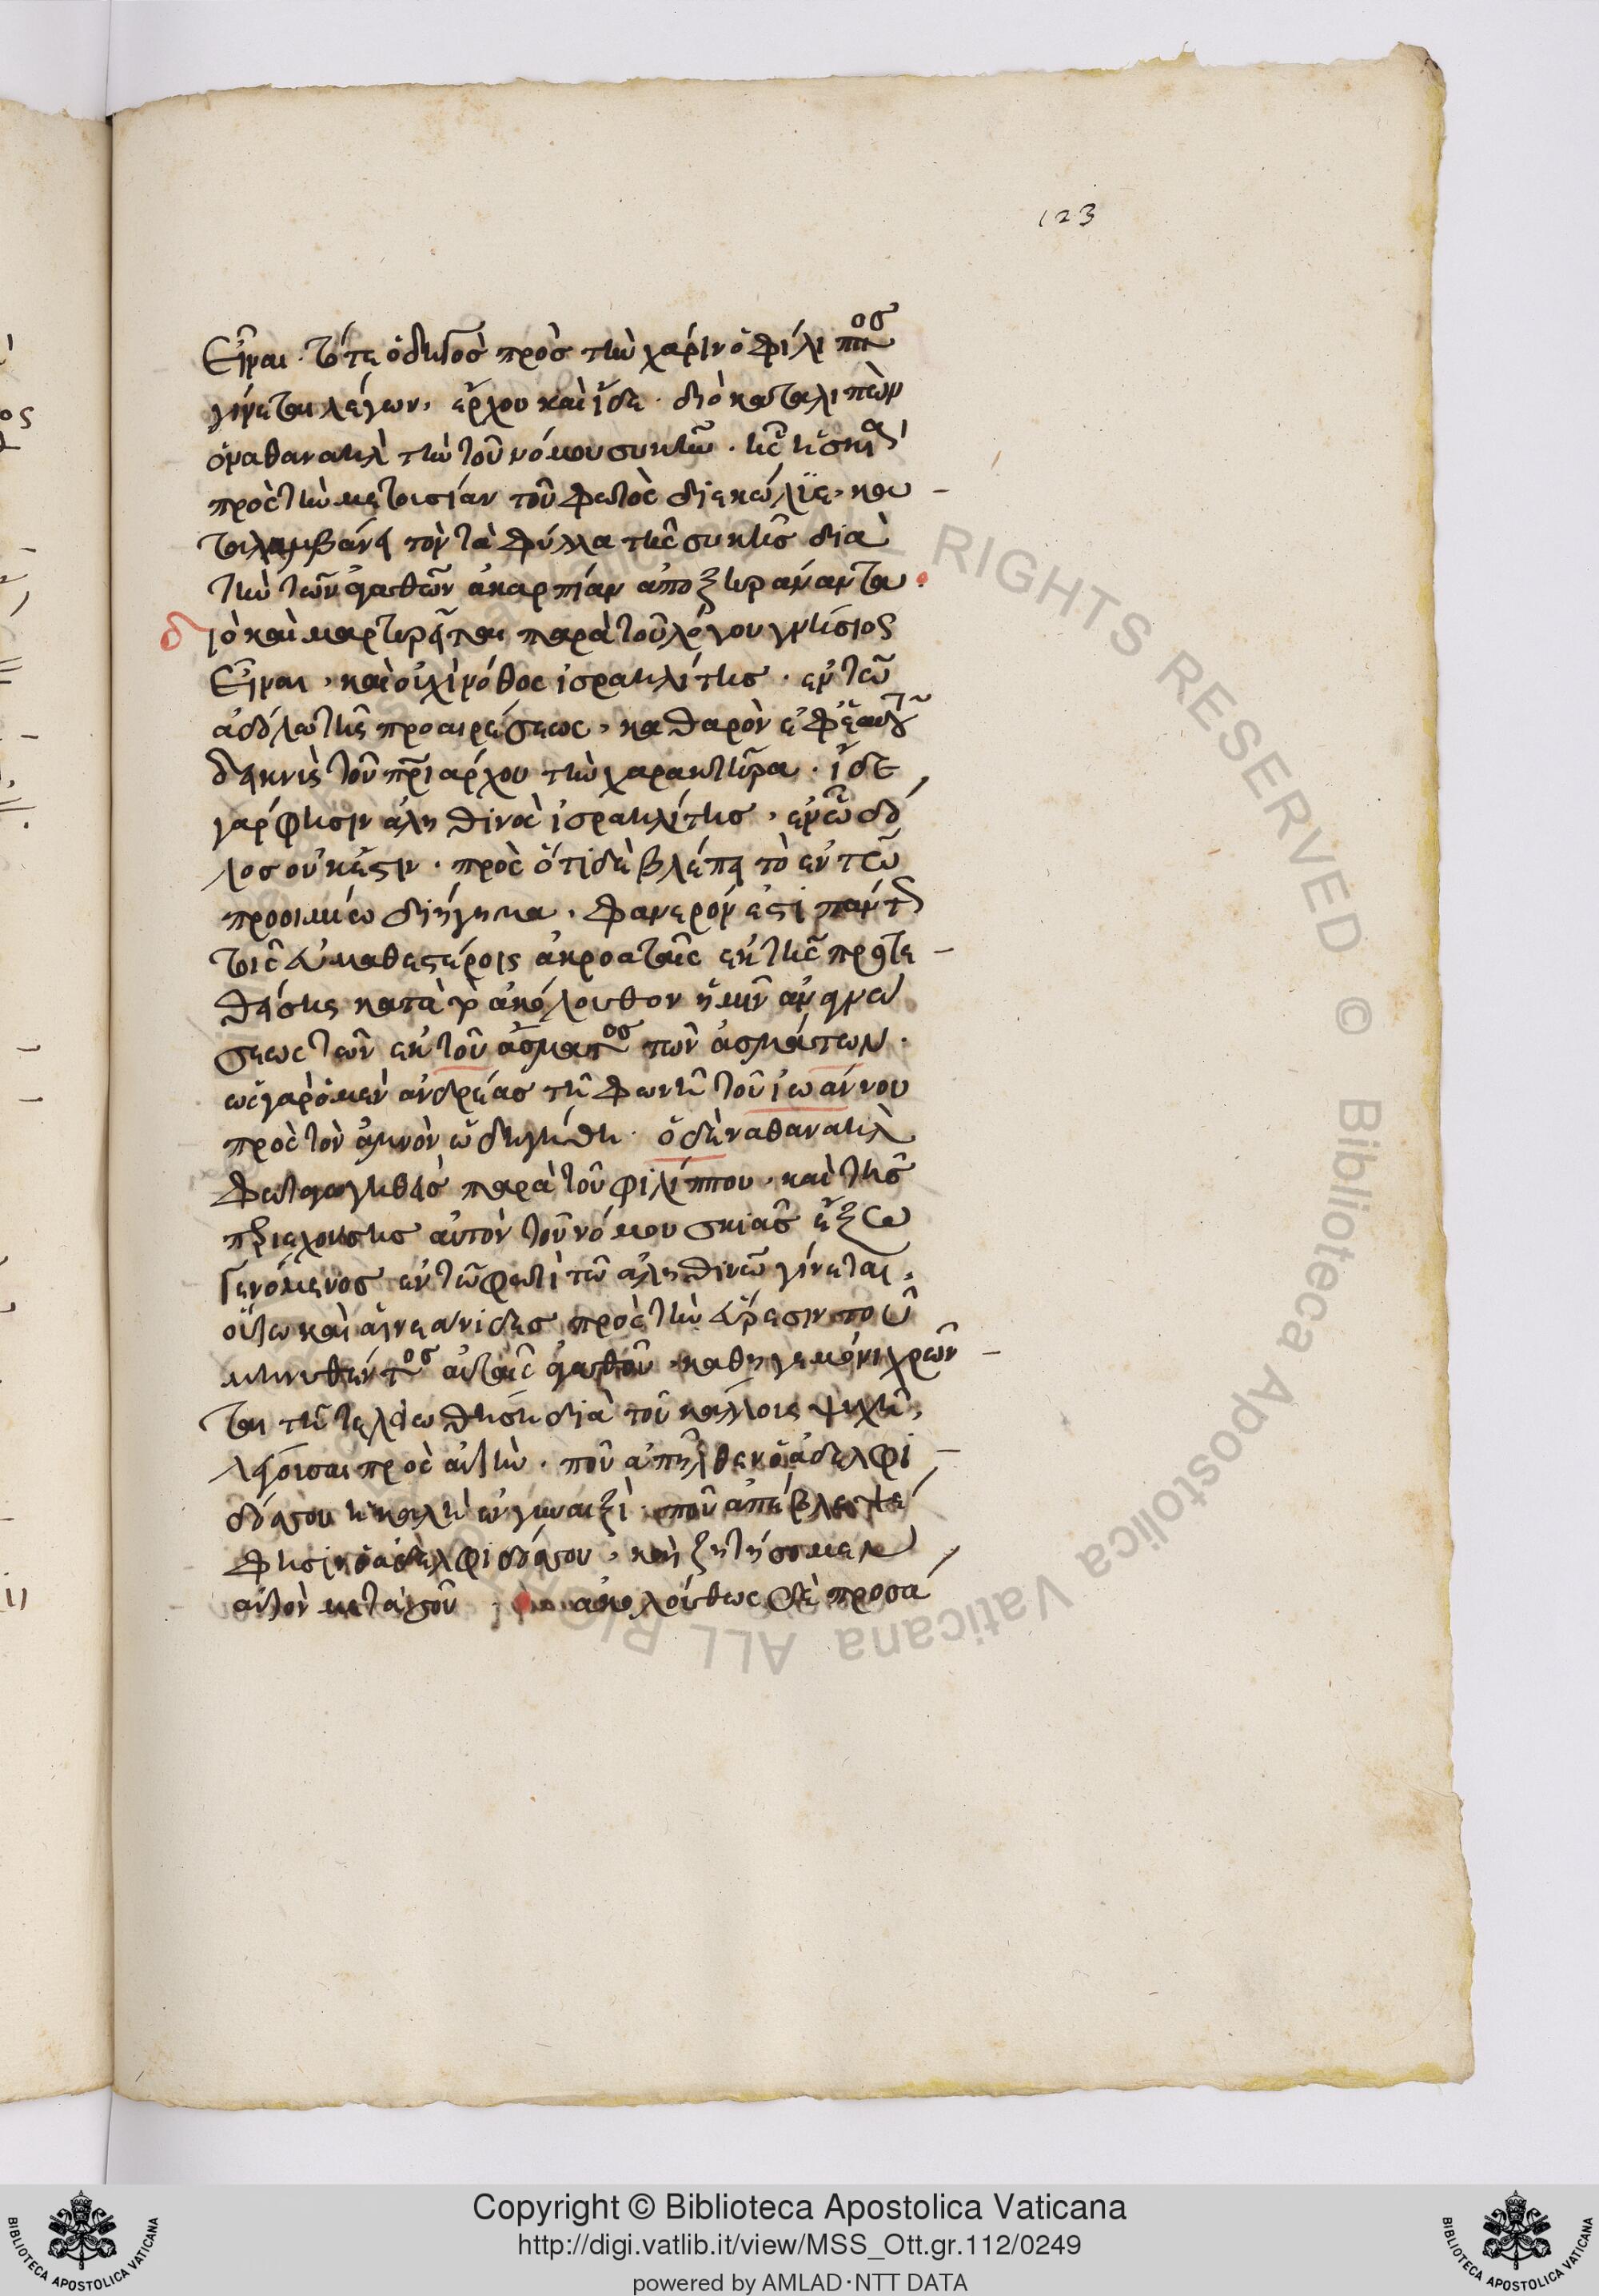 123
εἶναι· τότε ὁδηγὸς πρὸς τὴν χάριν ὁ φίλιππος
γίνεται λέγων, ἔρχου καὶ ἴδε· διὸ καταλιπὼν
ὁ ναθαναὴλ τὴν τοῦ νόμου συκῆν· ἧς ἡ σκιὰ
πρὸς τὴν μετουσίαν τοῦ φωτὸς διεκώλυε, κα
ταλαμβάνει τὸν τὰ φύλλα τῆς συκῆς διὰ
τὴν τῶν ἀγαθῶν ἀκαρπίαν ἀποξηράναντα.
διὸ καὶ μαρτυρεῖται παρὰ τοῦ λόγου γνήσιος
εἶναι, καὶ οὐχὶ νόθος ἰσραηλίτης· ἐν τῷ
ἀδόλῳ τῆς προαιρέσεως, καθαρὸν ἐφ' ἑαυτοῦ
δεικνὺς τοῦ πριάρχου τὴν χαρακτῆρα· ἴδε
γάρ φησιν ἀληθινὸς ἰσραηλίτης, ἐν ᾧ δό
λος οὐκ ἔστιν· πρὸς ὅτι δὲ βλέπει τὸ ἐν τῷ
προοιμίῳ διήγημα, φανερόν ἐστι πάντως
τοῖς εὐμαθεστέροις ἀκροαταῖς ἐκ τῆς προτε
θείσης κατὰ τὸ ἀκόλουθον ἡμῖν ἀναγνώ
σεως τῶν ἐκ τοῦ ἄσματος τῶν ἀσμάτων·
ὡς γὰρ ὁ μὲν ἀνδρέας τῇ φωνῇ τοῦ ἰωάννου
πρὸς τὸν ἀμνὸν ὡδηγήθη· ὁ δὲ ναθαναὴλ
φωταγωγηθεὶς παρὰ τοῦ φιλίππου, καὶ τῆς
περιεχούσης αὐτὸν τοῦ νόμου σκιᾶς ἔξω
γενόμενος ἐν τῷ φωτὶ τῷ ἀληθινῷ γίνεται,
οὕτω καὶ αἱ νεανίδες πρὸς τὴν εὕρεσιν τοῦ
μηνυθέντος αὐταῖς ἀγαθοῦ, καθηγεμόνι χρῶν
ται τῇ τελειωθείσῃ διὰ τοῦ κάλλους ψυχῇ,
λέγουσαι πρὸς αὐτὴν· ποῦ ἀπῆλθεν ὁ ἀδελφι
δός σου ἡ καλὴ ἐν γυναιξὶ· ποῦ ἀπέβλεψεν
φησιν ὁ ἀδελφιδός σου, καὶ ζητήσομεν
αὐτὸν μετὰ σοῦ· ἀκολούθως δὲ προσά
Copyright © Biblioteca Apostolica Vaticana
http://digi.vatlib.it/view/MSS_Ott.gr.112/0249
powered by AMLAD·NTT DATA